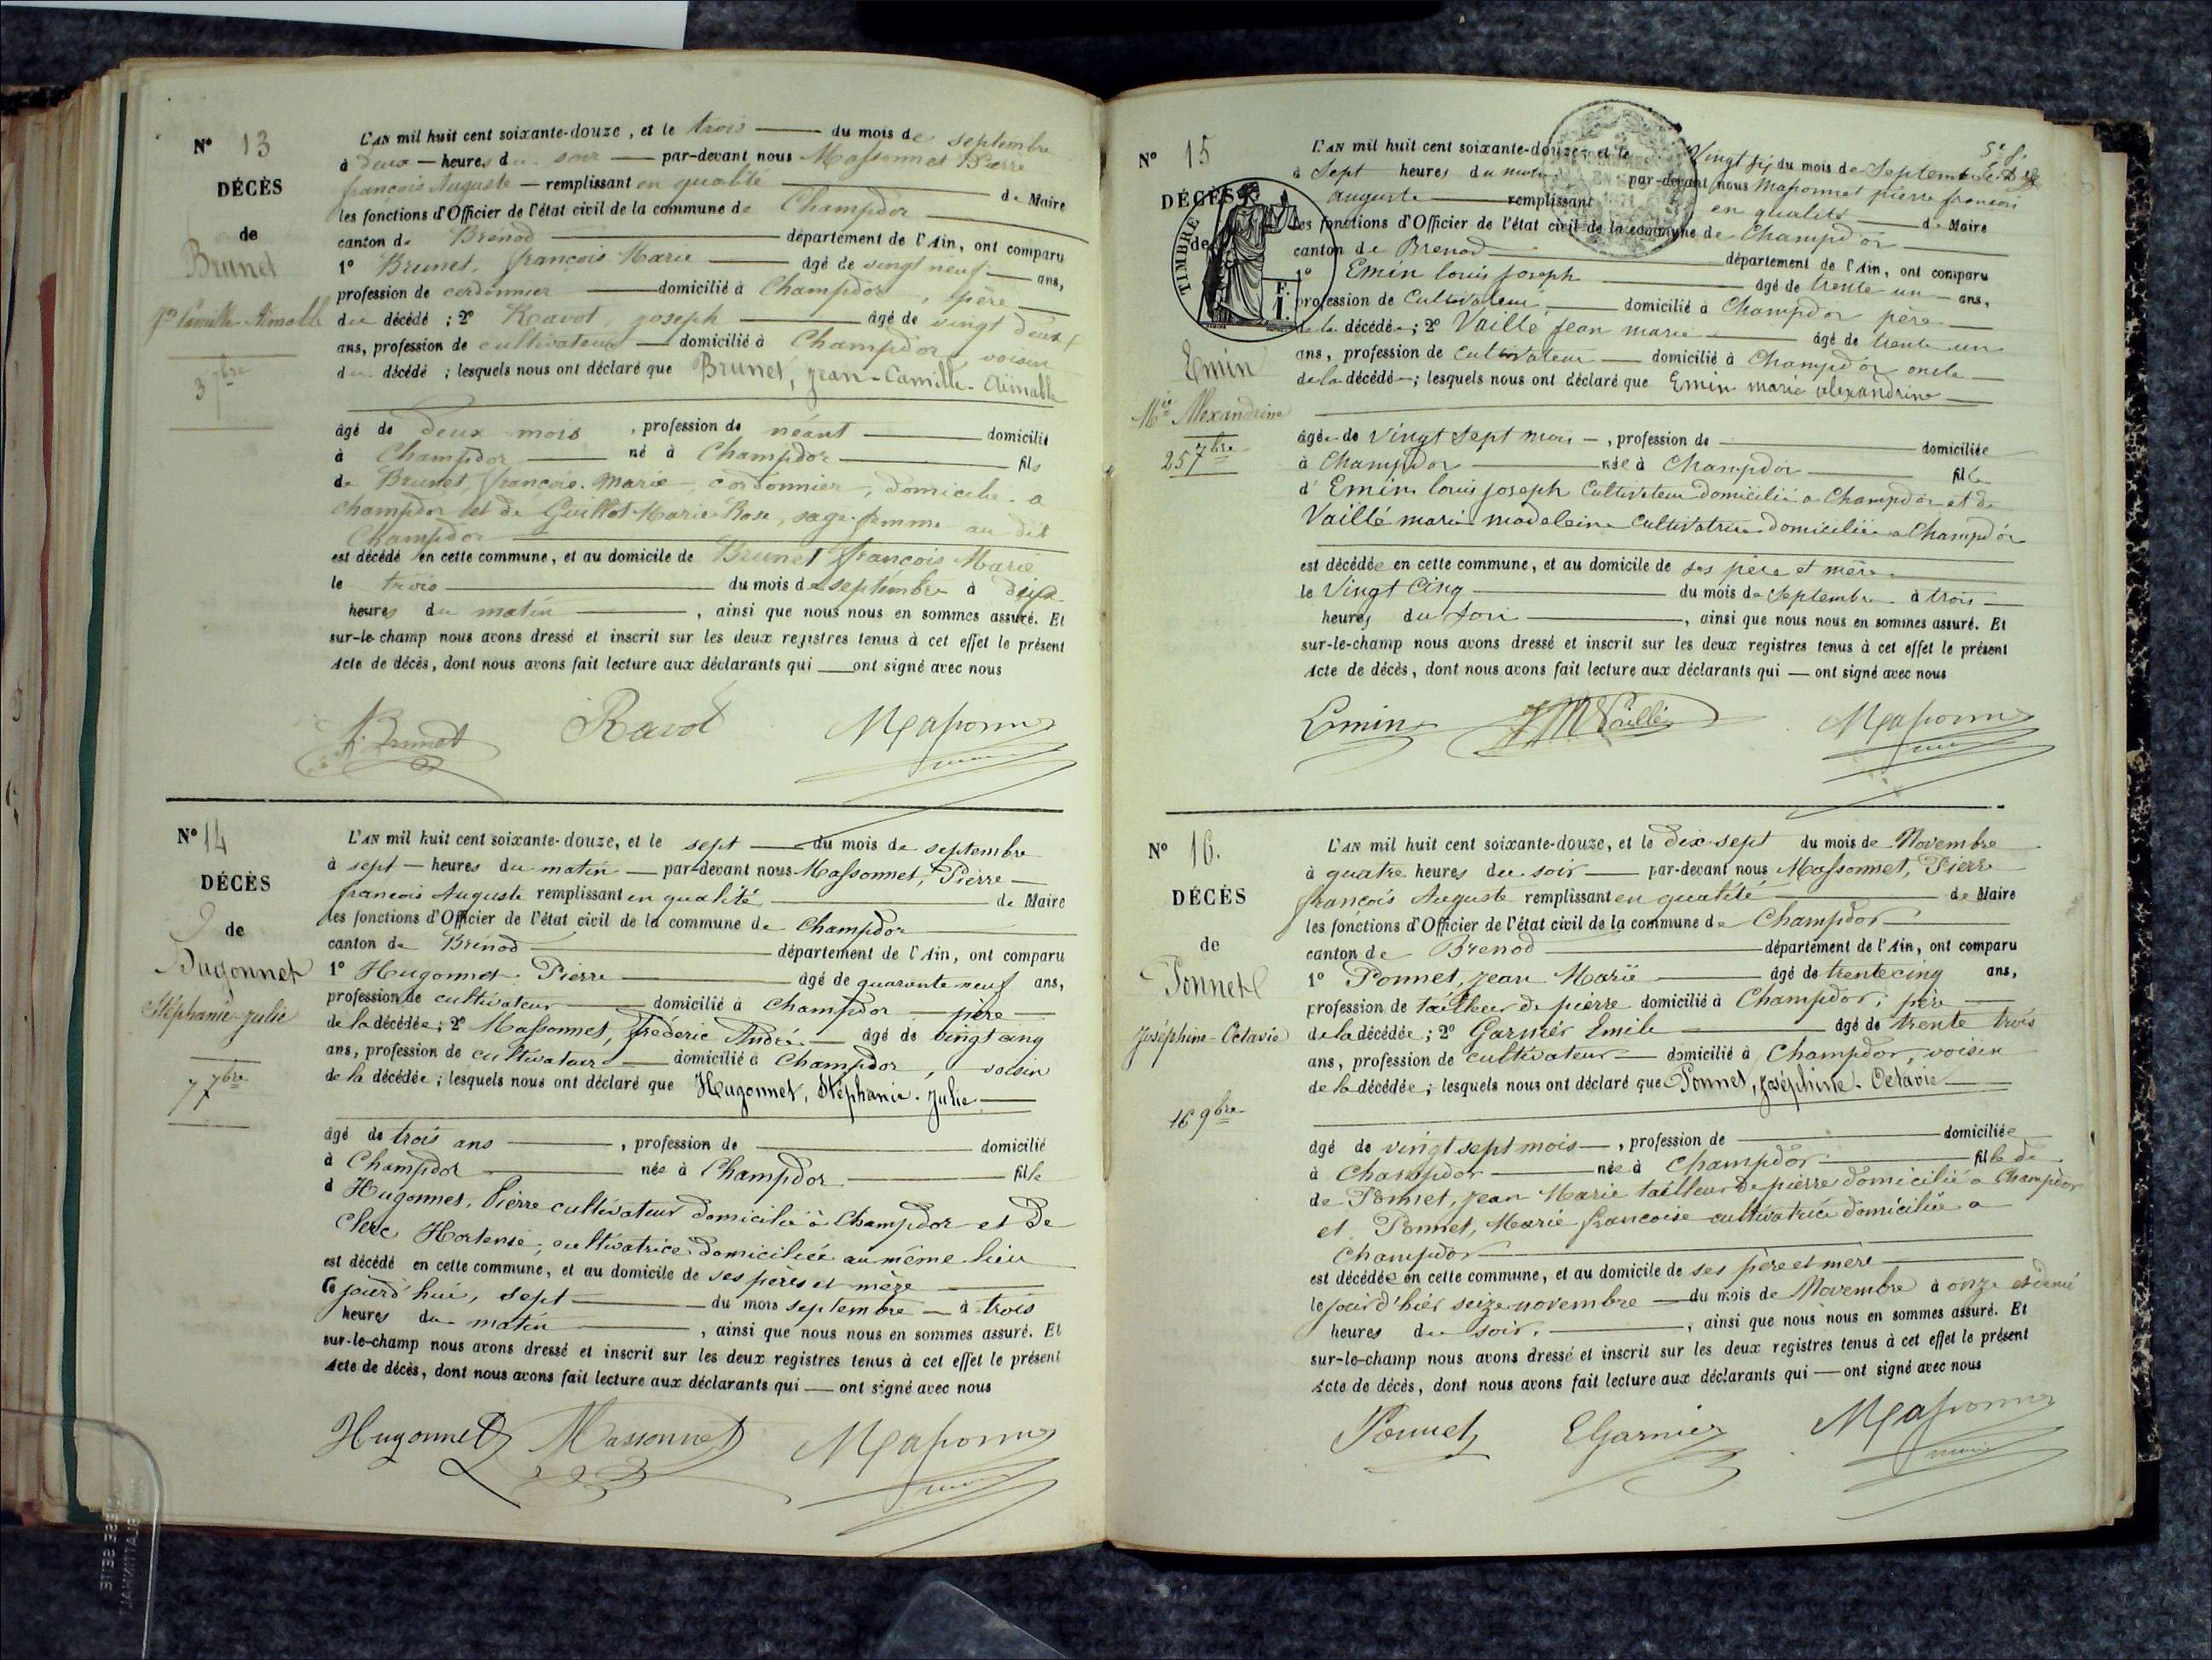 N° 13
DÉCÈS
de
Brunet
Jn Camille Aimable
3 7bre
L'AN mil huit cent soixante-douze, et le trois du mois de septembre
à deux heures du soir par-devant nous Massonnet Pierre
françois Auguste remplissant en qualité de Maire
les fonctions d'Officier de l'état civil de la commune de Champdor
canton de Brenod département de l'Ain, ont comparu
1° Brunet, françois Marie âgé de vingt neuf ans,
profession de cordonnier domicilié à Champdor, père
du décédé ; 2° Ravot joseph âgé de vingt deux
ans, profession de cultivateur domicilié à Champdor, voisin
du décédé ; lesquels nous ont déclaré que Brunet, Jean-Camille-Aimable
âgé de deux mois, profession de néant domicilié
à Champdor né à Champdor fils
de Brunet, françois Marie, cordonnier, domicilié a
champdor et de Guillot Marie Rose, sage-femme au dit
Champdor
est décédé en cette commune, et au domicile de Brunet françois Marie
le trois du mois de septembre à deux
heures du matin, ainsi que nous nous en sommes assuré. Et
sur-le-champ nous avons dressé et inscrit sur les deux registres tenus à cet effet le présent
Acte de décès, dont nous avons fait lecture aux déclarants qui ont signé avec nous
f. Brunet Ravot Massonnet
maire
N° 14
DÉCÈS
de
Hugonnet
Stéphanie Julie
7 7bre
L'AN mil huit cent soixante-douze, et le sept du mois de septembre
à sept heures du matin par-devant nous Massonnet, Pierre
françois Auguste remplissant en qualité de Maire
les fonctions d'Officier de l'état civil de la commune de Champdor
canton de Brenod département de l'Ain, ont comparu
1° Hugonnet Pierre âgé de quarante neuf ans,
profession de cultivateur domicilié à Champdor père
de la décédée ; 2° Massonnet, Fréderic André âgé de vingt cinq
ans, profession de cultivateur domicilié à Champdor, voisin
de la décédée ; lesquels nous ont déclaré que Hugonnet, Stéphanie Julie
âgé de trois ans, profession de domicilié
à Champdor née à Champdor fille
d Hugonnet, Pierre cultivateur domicilié à Champdor et de
Clerc Hortense, cultivatrice domiciliée au même lieu
est décédé en cette commune, et au domicile de ses pères et mère
Ce jourd'hui, sept du mois septembre à trois
heures du matin, ainsi que nous nous en sommes assuré. Et
sur-le-champ nous avons dressé et inscrit sur les deux registres tenus à cet effet le présent
Acte de décès, dont nous avons fait lecture aux déclarants qui ont signé avec nous
Hugonnet Massonnet Massonnet
maire
N° 15
DÉCÈS
de
TIMBRE
F.
1.
Emin
Mie Alexandrine
25 7bre
L'AN mil huit cent soixante-douze et le Vingt six du mois de Septembre
à Sept heures du matin par-devant nous Massonnet pierre francois
auguste remplissant en qualité de Maire
les fonctions d'Officier de l'état civil de la commune de Champd'or
canton de Brenod département de l'Ain, ont comparu
1° Emin louis joseph âgé de trente un ans,
profession de Cultivateur domicilié à Champdor père
de la décédée ; 2° Vaillé jean marie âgé de trente un
ans, profession de Cultivateur domicilié à Champd'or oncle
de la décédée ; lesquels nous ont déclaré que Emin marie alexandrine
âgée de Vingt Sept mois, profession de domiciliée
à Champdor née à Champdor fille
d' Emin louis joseph Cultivateur domicilié a Champdor et de
Vaillé marie madeleine Cultivatrice domiciliée a Champd'or
est décédée en cette commune, et au domicile de ses père et mère
le Vingt Cinq du mois de Septembre à trois
heures du soir, ainsi que nous nous en sommes assuré. Et
sur-le-champ nous avons dressé et inscrit sur les deux registres tenus à cet effet le présent
Acte de décès, dont nous avons fait lecture aux déclarants qui ont signé avec nous
Emin JM Vaillé Massonnet
maire
N° 16.
DÉCÈS
de
Ponnet
Joséphine-Octavie
16 9bre
L'AN mil huit cent soixante-douze, et le dix-sept du mois de Novembre
à quatre heures du soir par-devant nous Massonnet, Pierre
françois Auguste remplissant en qualité de Maire
les fonctions d'Officier de l'état civil de la commune de Champdor
canton de Brenod département de l'Ain, ont comparu
1° Ponnet, Jean Marie âgé de trente cinq ans,
profession de tailleur de pierre domicilié à Champdor, père
de la décédée ; 2° Garnier Emile âgé de trente trois
ans, profession de cultivateur domicilié à Champdor, voisin
de la décédée ; lesquels nous ont déclaré que Ponnet, Joséphine-Octavie
âgé de vingt sept mois, profession de domiciliée
à Champdor née à Champdor fille de
de Ponnet, Jean Marie tailleur de pierre domicilié a Champdor
et Ponnet, Marie françoise cultivatrice domiciliée a
Champdor
est décédée en cette commune, et au domicile de ses père et mère
le jour d'hier seize novembre du mois de Novembre à onze et demi
heures du soir, ainsi que nous nous en sommes assuré. Et
sur-le-champ nous avons dressé et inscrit sur les deux registres tenus à cet effet le présent
Acte de décès, dont nous avons fait lecture aux déclarants qui ont signé avec nous
Ponnet EGarnier Massonnet
maire